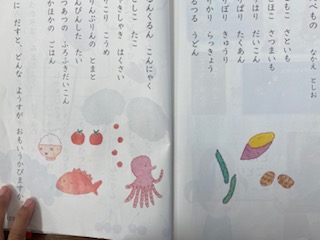 べもの
なかえ としお
もこ さといも
ほこ さつまいも
はり だいこん
ぱり たくあん
ぽり きゅうり
りかり らっきょう
るつる うどん
るんくるん こんにゃく
こしこ たこ
きしゃき はくさい
こりこり こうめ
りんぷりんの とまと
んぴんした たい
つあつの ふろふきだいこん
かほかの ごはん
に だすと、どんな ようすが おもいうかびますか